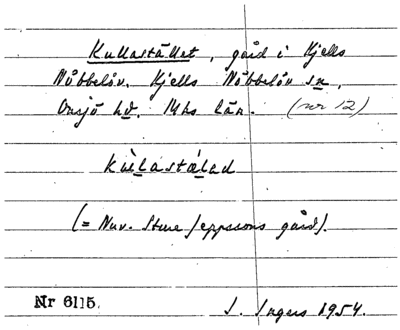 Kullastället, gård i Kjells
Nöbbelöv. Kjells Nöbbelöv sn,
Onsjö hd. Mhs län. (nr 12)
kùlastálad
(= Nuv. Sture Jeppssons gård).
Nr 6115. J. Ingers 1954.